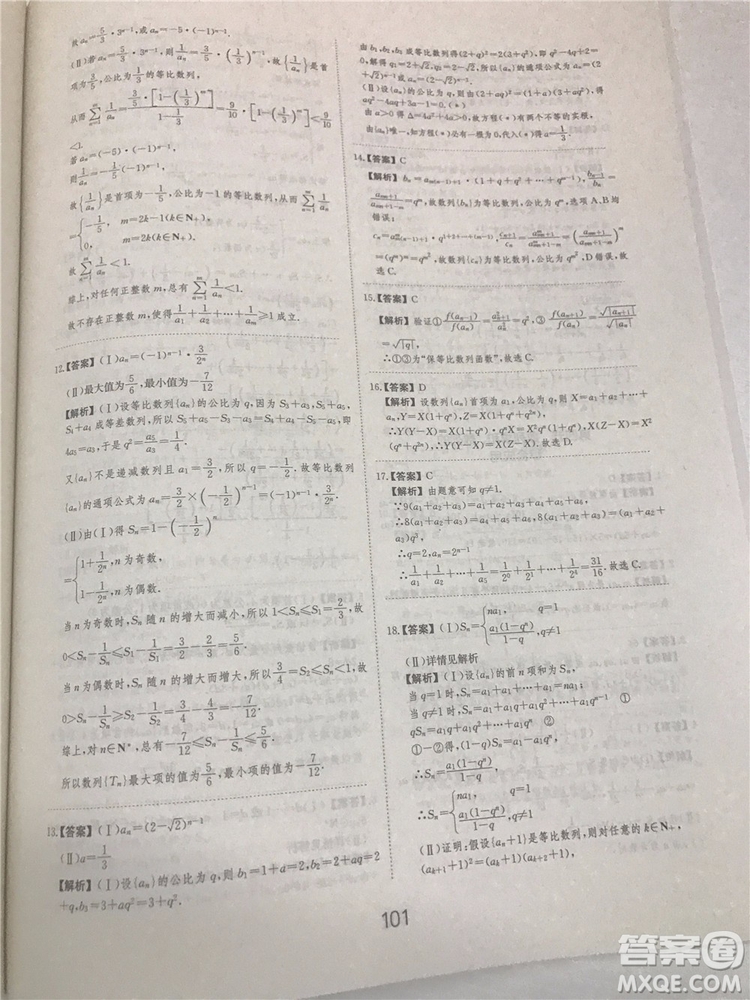 故aₙ=5/3·3ⁿ⁻¹,或aₙ=-5·(-1)ⁿ⁻¹.
(Ⅱ)若aₙ=5/3·3ⁿ⁻¹,则1/aₙ=3/5·(1/3)ⁿ⁻¹,故{1/aₙ}是首
项为3/5,公比为1/3的等比数列,
从而∑ₙ₌₁ᵐ 1/aₙ=3/5·[1-(1/3)ᵐ]/(1-1/3)=9/10·[1-(1/3)ᵐ]<9/10
<1.
若aₙ=(-5)·(-1)ⁿ⁻¹,
则1/aₙ=-1/5(-1)ⁿ⁻¹,
故{1/aₙ}是首项为-1/5,公比为-1的等比数列,从而∑ₙ₌₁ᵐ 1/aₙ
={-1/5, m=2k-1(k∈N₊),
0, m=2k(k∈N₊),
故∑ₙ₌₁ᵐ 1/aₙ<1.
综上,对任何正整数m,总有∑ₙ₌₁ᵐ 1/aₙ<1.
故不存在正整数m,使得1/a₁+1/a₂+…+1/aₘ≥1成立.
12.【答案】(Ⅰ)aₙ=(-1)ⁿ⁻¹·3/2ⁿ
(Ⅱ)最大值为5/6,最小值为-7/12
【解析】(Ⅰ)设等比数列{aₙ}的公比为q,因为S₃+a₃,S₅+a₅,
S₄+a₄成等差数列,所以S₅+a₅-S₃-a₃=S₄+a₄-S₅-a₅,即
4a₅=a₃,于是q²=a₅/a₃=1/4.
又{aₙ}不是递减数列且a₁=3/2,所以q=-1/2.故等比数列
{aₙ}的通项公式为aₙ=3/2×(-1/2)ⁿ⁻¹=(-1)ⁿ⁻¹·3/2ⁿ.
(Ⅱ)由(Ⅰ)得Sₙ=1-(-1/2)ⁿ
={1+1/2ⁿ,n为奇数,
1-1/2ⁿ,n为偶数.
当n为奇数时,Sₙ随n的增大而减小,所以1<Sₙ≤S₁=3/2,故
0<Sₙ-1/Sₙ≤S₁-1/S₁=3/2-2/3=5/6.
当n为偶数时,Sₙ随n的增大而增大,所以3/4=S₂≤Sₙ<1,故
0>Sₙ-1/Sₙ≥S₂-1/S₂=3/4-4/3=-7/12.
综上,对n∈N*,总有-7/12≤Sₙ-1/Sₙ≤5/6.
所以数列{Tₙ}最大项的值为5/6,最小项的值为-7/12.
13.【答案】(Ⅰ)aₙ=(2-√2)ⁿ⁻¹
(Ⅱ)a=1/3
【解析】(Ⅰ)设{aₙ}的公比为q,则b₁=1+a=2,b₂=2+aq=2
+q,b₃=3+aq²=3+q².
由b₁,b₂,b₃成等比数列得(2+q)²=2(3+q²),即q²-4q+2=
0,解得q₁=2+√2,q₂=2-√2,所以{aₙ}的通项公式为aₙ=(2
+√2)ⁿ⁻¹或aₙ=(2-√2)ⁿ⁻¹.
(Ⅱ)设{aₙ}的公比为q,则由(2+aq)²=(1+a)(3+aq²),得
aq²-4aq+3a-1=0.(*)
由a>0,得Δ=4a²+4a>0,故方程(*)有两个不同的实根.
由{aₙ}唯一,知方程(*)必有一根为0,代入(*)得a=1/3.
14.【答案】C
【解析】bₙ=aₘ₍ₙ₋₁₎₊₁·(1+q+q²+…+qᵐ⁻¹),bₙ₊₁/bₙ=
aₘₙ₊₁/aₘₙ₊₁₋ₘ=qᵐ,故数列{bₙ}为等比数列,公比为qᵐ,选项A、B均
错误;
cₙ=aᵐₘ₍ₙ₋₁₎₊₁·q¹⁺²⁺…⁺⁽ᵐ⁻¹⁾,cₙ₊₁/cₙ=aᵐₘₙ₊₁/aᵐₘₙ₊₁₋ₘ=(aₘₙ₊₁/aₘₙ₊₁₋ₘ)ᵐ
=(qᵐ)ᵐ=qᵐ²,故数列{cₙ}为等比数列,公比为qᵐ²,D错误,故
选C.
15.【答案】C
【解析】验证①f(aₙ₊₁)/f(aₙ)=a²ₙ₊₁/a²ₙ=q²,③f(aₙ₊₁)/f(aₙ)=√|aₙ₊₁|/√|aₙ|
=√|q|,
∴①③为“保等比数列函数”,故选C.
16.【答案】D
【解析】设数列{aₙ}首项为a₁,公比为q,则X=a₁+a₂+…+
aₙ,Y=X(1+qⁿ),Z=X(1+qⁿ+q²ⁿ).
∴Y(Y-X)=X(1+qⁿ)·Xqⁿ=X²(qⁿ+q²ⁿ),X(Z-X)=X²
(qⁿ+q²ⁿ),∴Y(Y-X)=X(Z-X),故选D.
17.【答案】C
【解析】由题意可知q≠1.
∵9(a₁+a₂+a₃)=a₁+a₂+a₃+a₄+a₅+a₆,
∴8(a₁+a₂+a₃)=a₄+a₅+a₆,8(a₁+a₂+a₃)=(a₁+a₂+
a₃)q³
∴q=2,aₙ=2ⁿ⁻¹
∴1/a₁+1/a₂+…+1/a₅=1/2⁰+1/2¹+…+1/2⁴=31/16.故选C.
18.【答案】(Ⅰ)Sₙ={na₁, q=1
a₁(1-qⁿ)/(1-q),q≠1
(Ⅱ)详情见解析
【解析】(Ⅰ)设{aₙ}的前n项和为Sₙ,
当q=1时,Sₙ=a₁+a₁+…+a₁=na₁;
当q≠1时,Sₙ=a₁+a₁q+a₁q²+…+a₁qⁿ⁻¹ ①
qSₙ=a₁q+a₁q²+…+a₁qⁿ ②
①-②得,(1-q)Sₙ=a₁-a₁qⁿ,
∴Sₙ=a₁(1-qⁿ)/(1-q),
∴Sₙ={na₁, q=1
a₁(1-qⁿ)/(1-q),q≠1
(Ⅱ)证明:假设{aₙ+1}是等比数列,则对任意的k∈N₊,
(aₖ₊₁+1)²=(aₖ+1)(aₖ₊₂+1),
101
答案圈
MXQE.COM